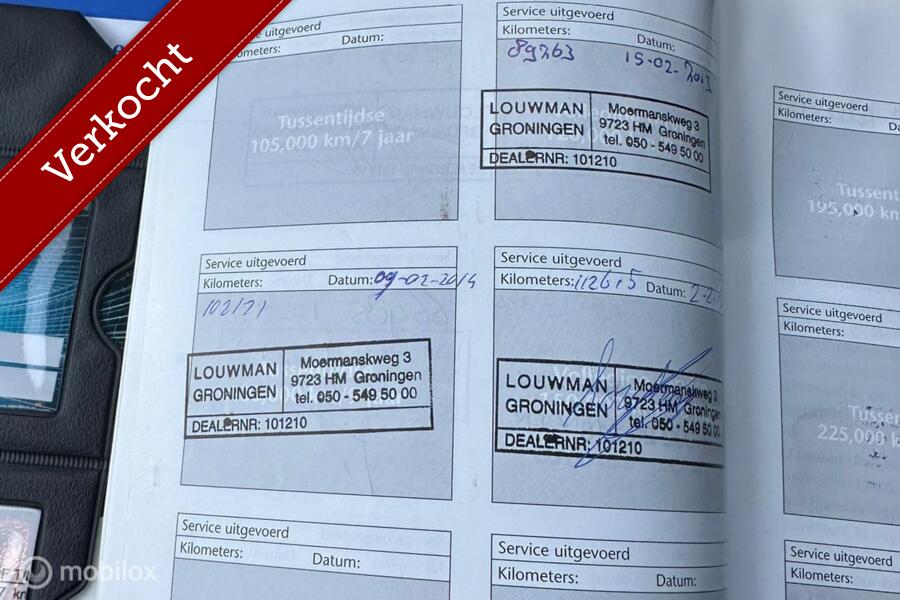 Verkocht
Service uitgevoerd
Kilometers:
Datum:
Tussentijdse
105,000 km/7 jaar
Service uitgevoerd
Kilometers:
Datum:
89263
15-02-2013
LOUWMAN
GRONINGEN
Moermanskweg 3
9723 HM Groningen
tel. 050 - 549 50 00
DEALERNR: 101210
Service uitgevoerd
Kilometers:
Datum: 09-02-2014
LOUWMAN
GRONINGEN
Moermanskweg 3
9723 HM Groningen
tel. 050 - 549 50 00
DEALERNR: 101210
Service uitgevoerd
Kilometers:
Datum:
LOUWMAN
GRONINGEN
Moermanskweg 3
9723 HM Groningen
tel. 050 - 549 50 00
DEALERNR: 101210
Service uitgevoerd
Kilometers:
Datum:
Service uitgevoerd
Kilometers:
Datum:
Service uitgevoerd
Kilometers:
195,000 km
Service uitgevoerd
Kilometers:
225,000 k
Service uitgevoerd
Kilometers:
mobilox